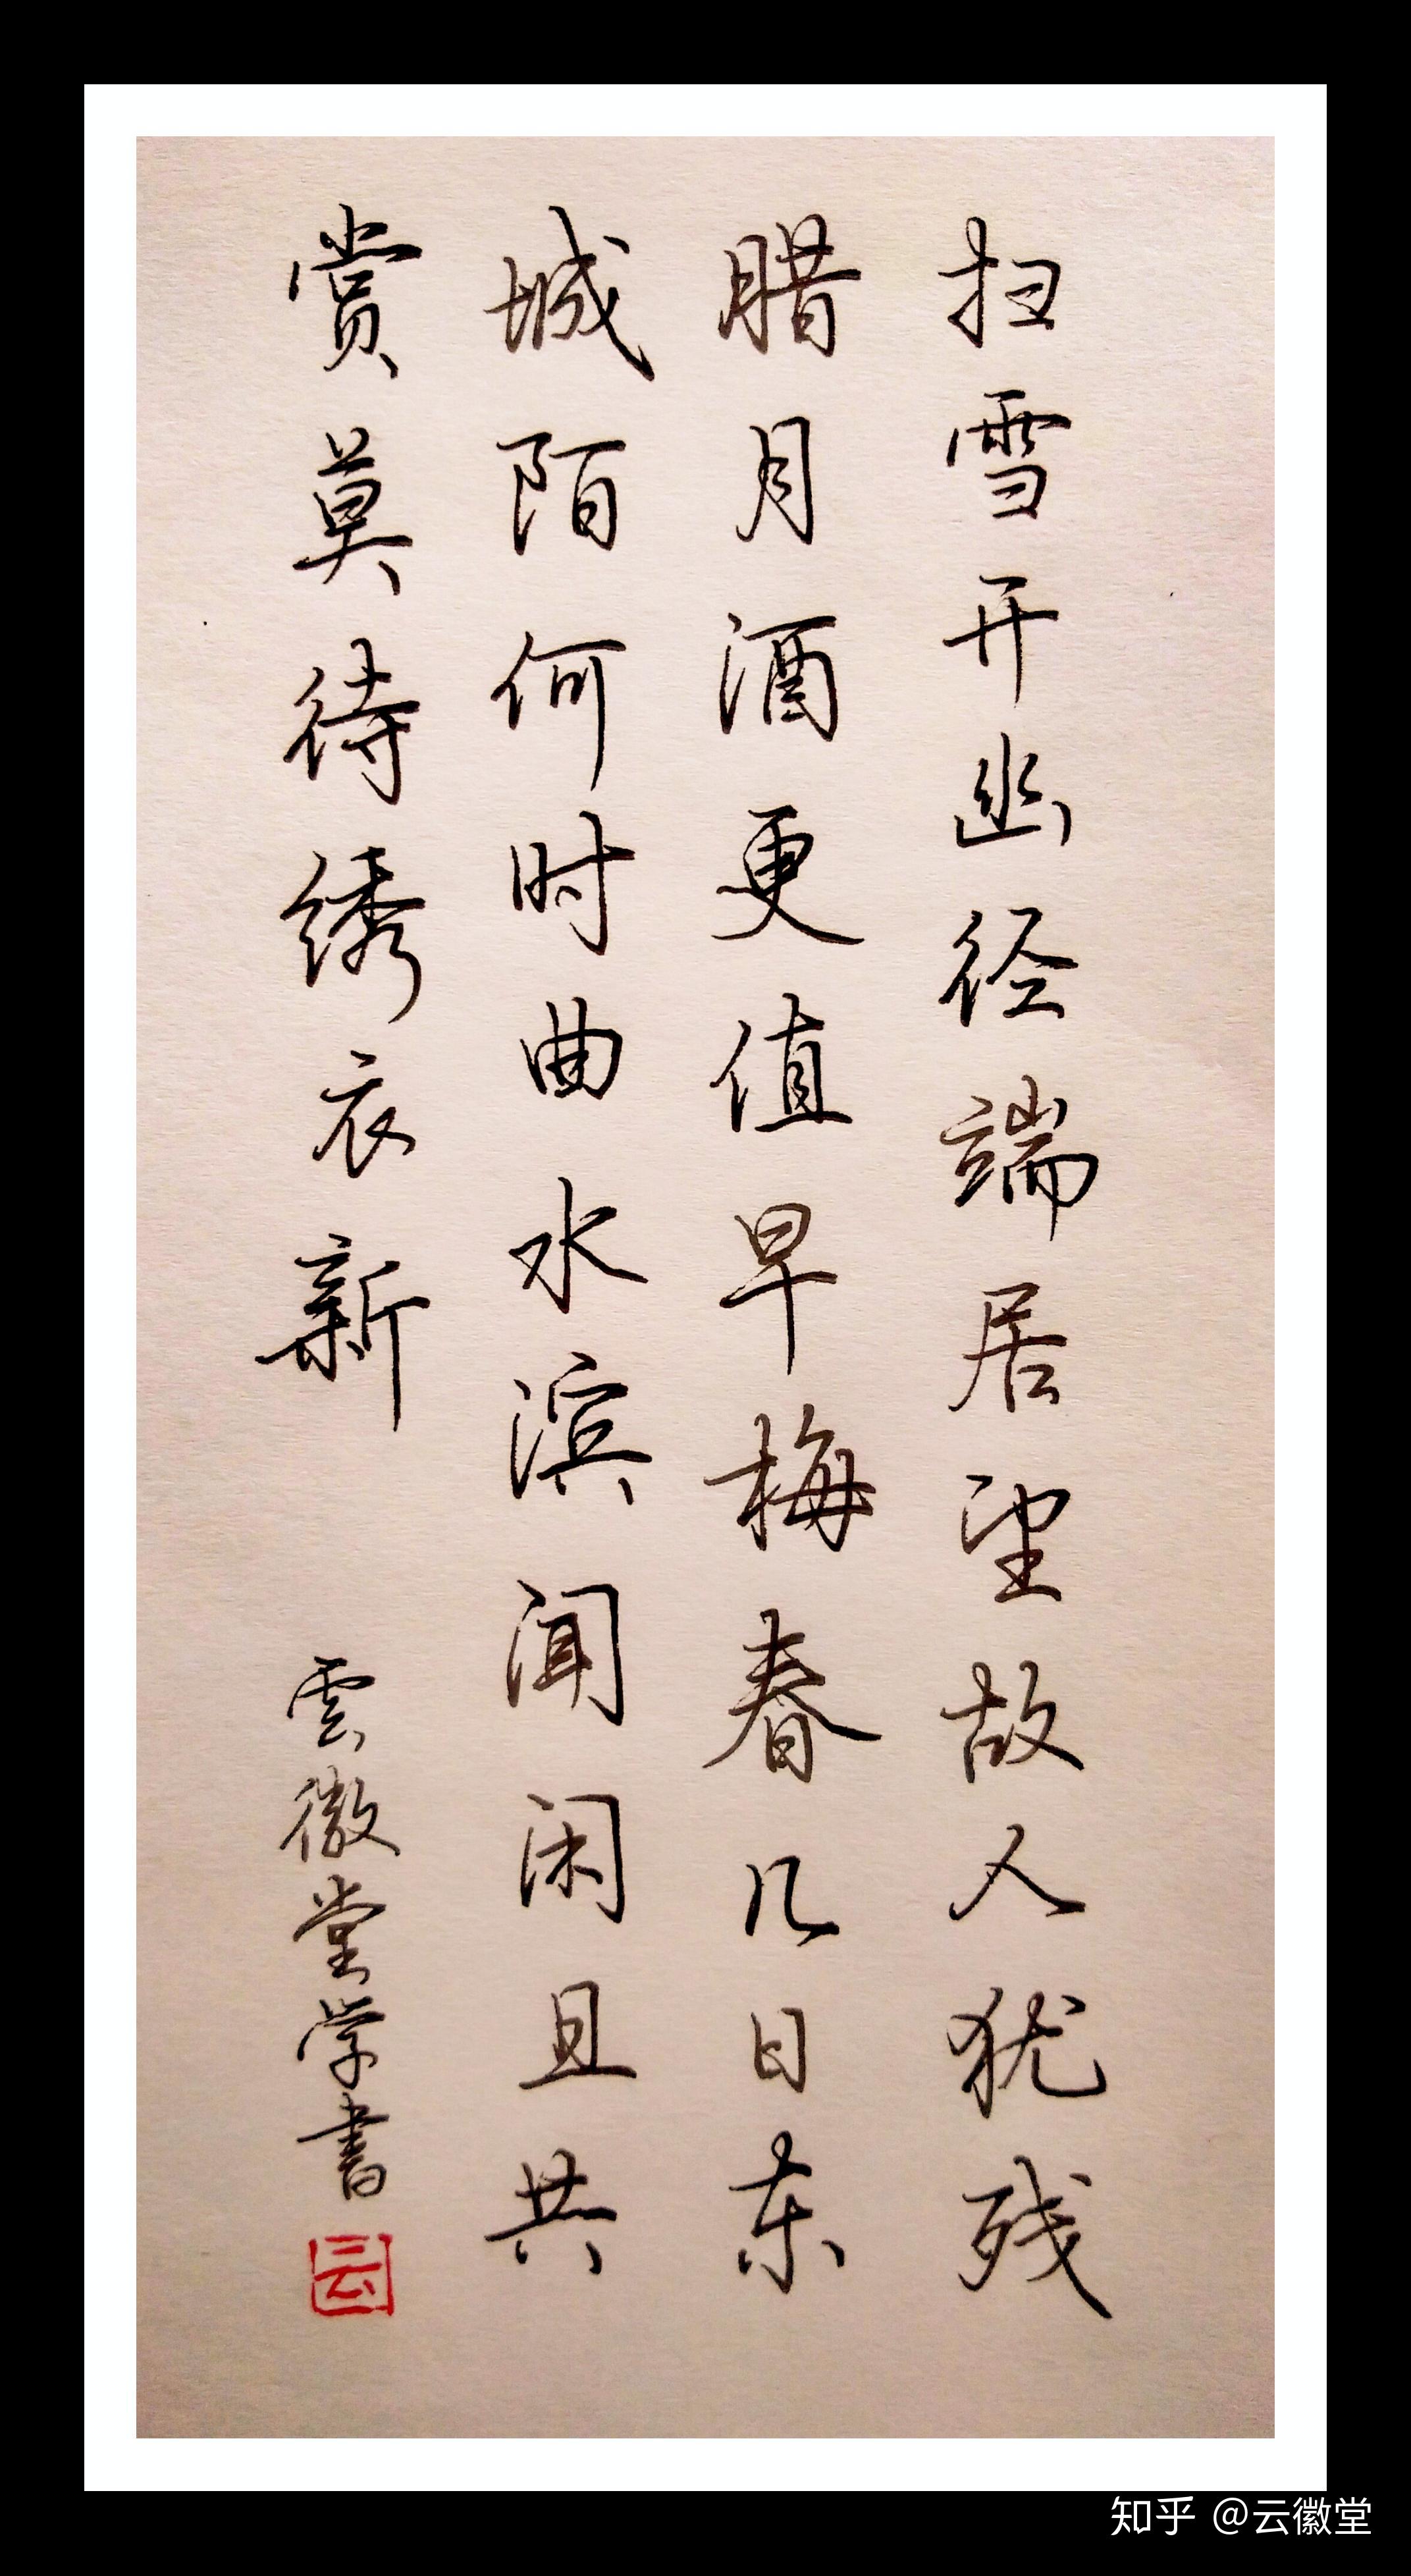 扫雪开幽径端居望故人犹残
腊月酒更值早梅春几日东
城陌何时曲水滨闻闲且共
赏莫待绣衣新
雲徽堂学書
云
知乎 @云徽堂